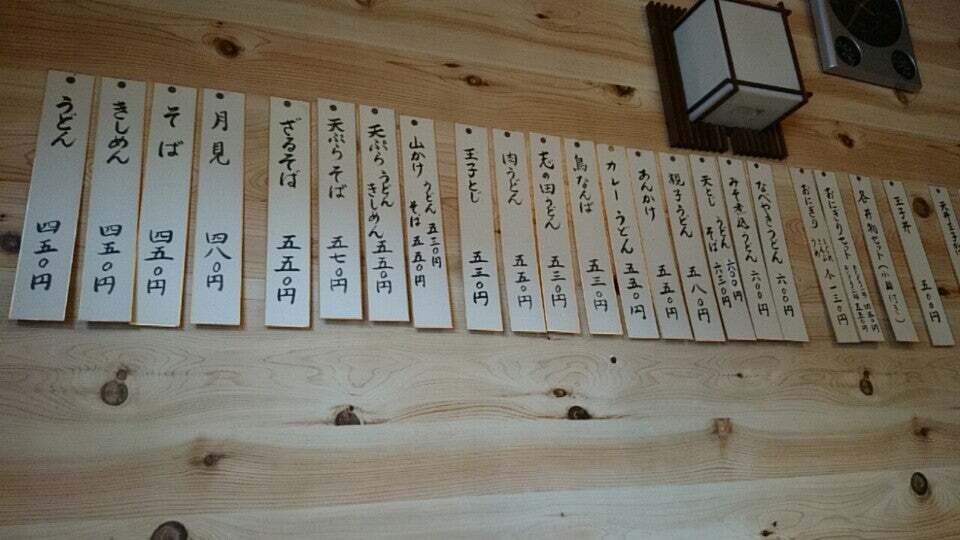 うどん
四五〇円
きしめん
四五〇円
そば
四五〇円
月見
四八〇円
ざるそば
五五〇円
天ぷらそば
五七〇円
天ぷらうどん
きしめん
五五〇円
山かけ
うどん 五三〇円
そば 五五〇円
玉子とじ
五三〇円
肉うどん
五五〇円
志の田うどん
五三〇円
鳥なんば
五三〇円
カレーうどん
五五〇円
あんかけ
五五〇円
親子うどん
五八〇円
天とじ
そば 六三〇円
みそ煮込うどん
六〇〇円
なべやきうどん
六〇〇円
おにぎり
一三〇円
おにぎりセット
各丼物セット(小鉢付
玉子丼
五〇〇円